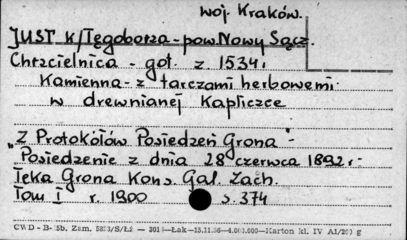 woj. Kraków.
JUST k/Tęgoborza - pow. Nowy Sącz.
Chrzcielnica - got. z 1534 r
Kamienna - z tarczami herbowemi
w drewnianej Kapliczce
"Z Protokółów Posiedzeń Grona" -
Posiedzenie z dnia 28 czerwca 1892 r -
Teka Grona Kons. Gal. Zach.
Tom I r. 1900 s. 374
CWD - B- 5b, Zam. /S/Łż — Łak—15.11.56—4.000.000—Karton kl. IV A1/ g